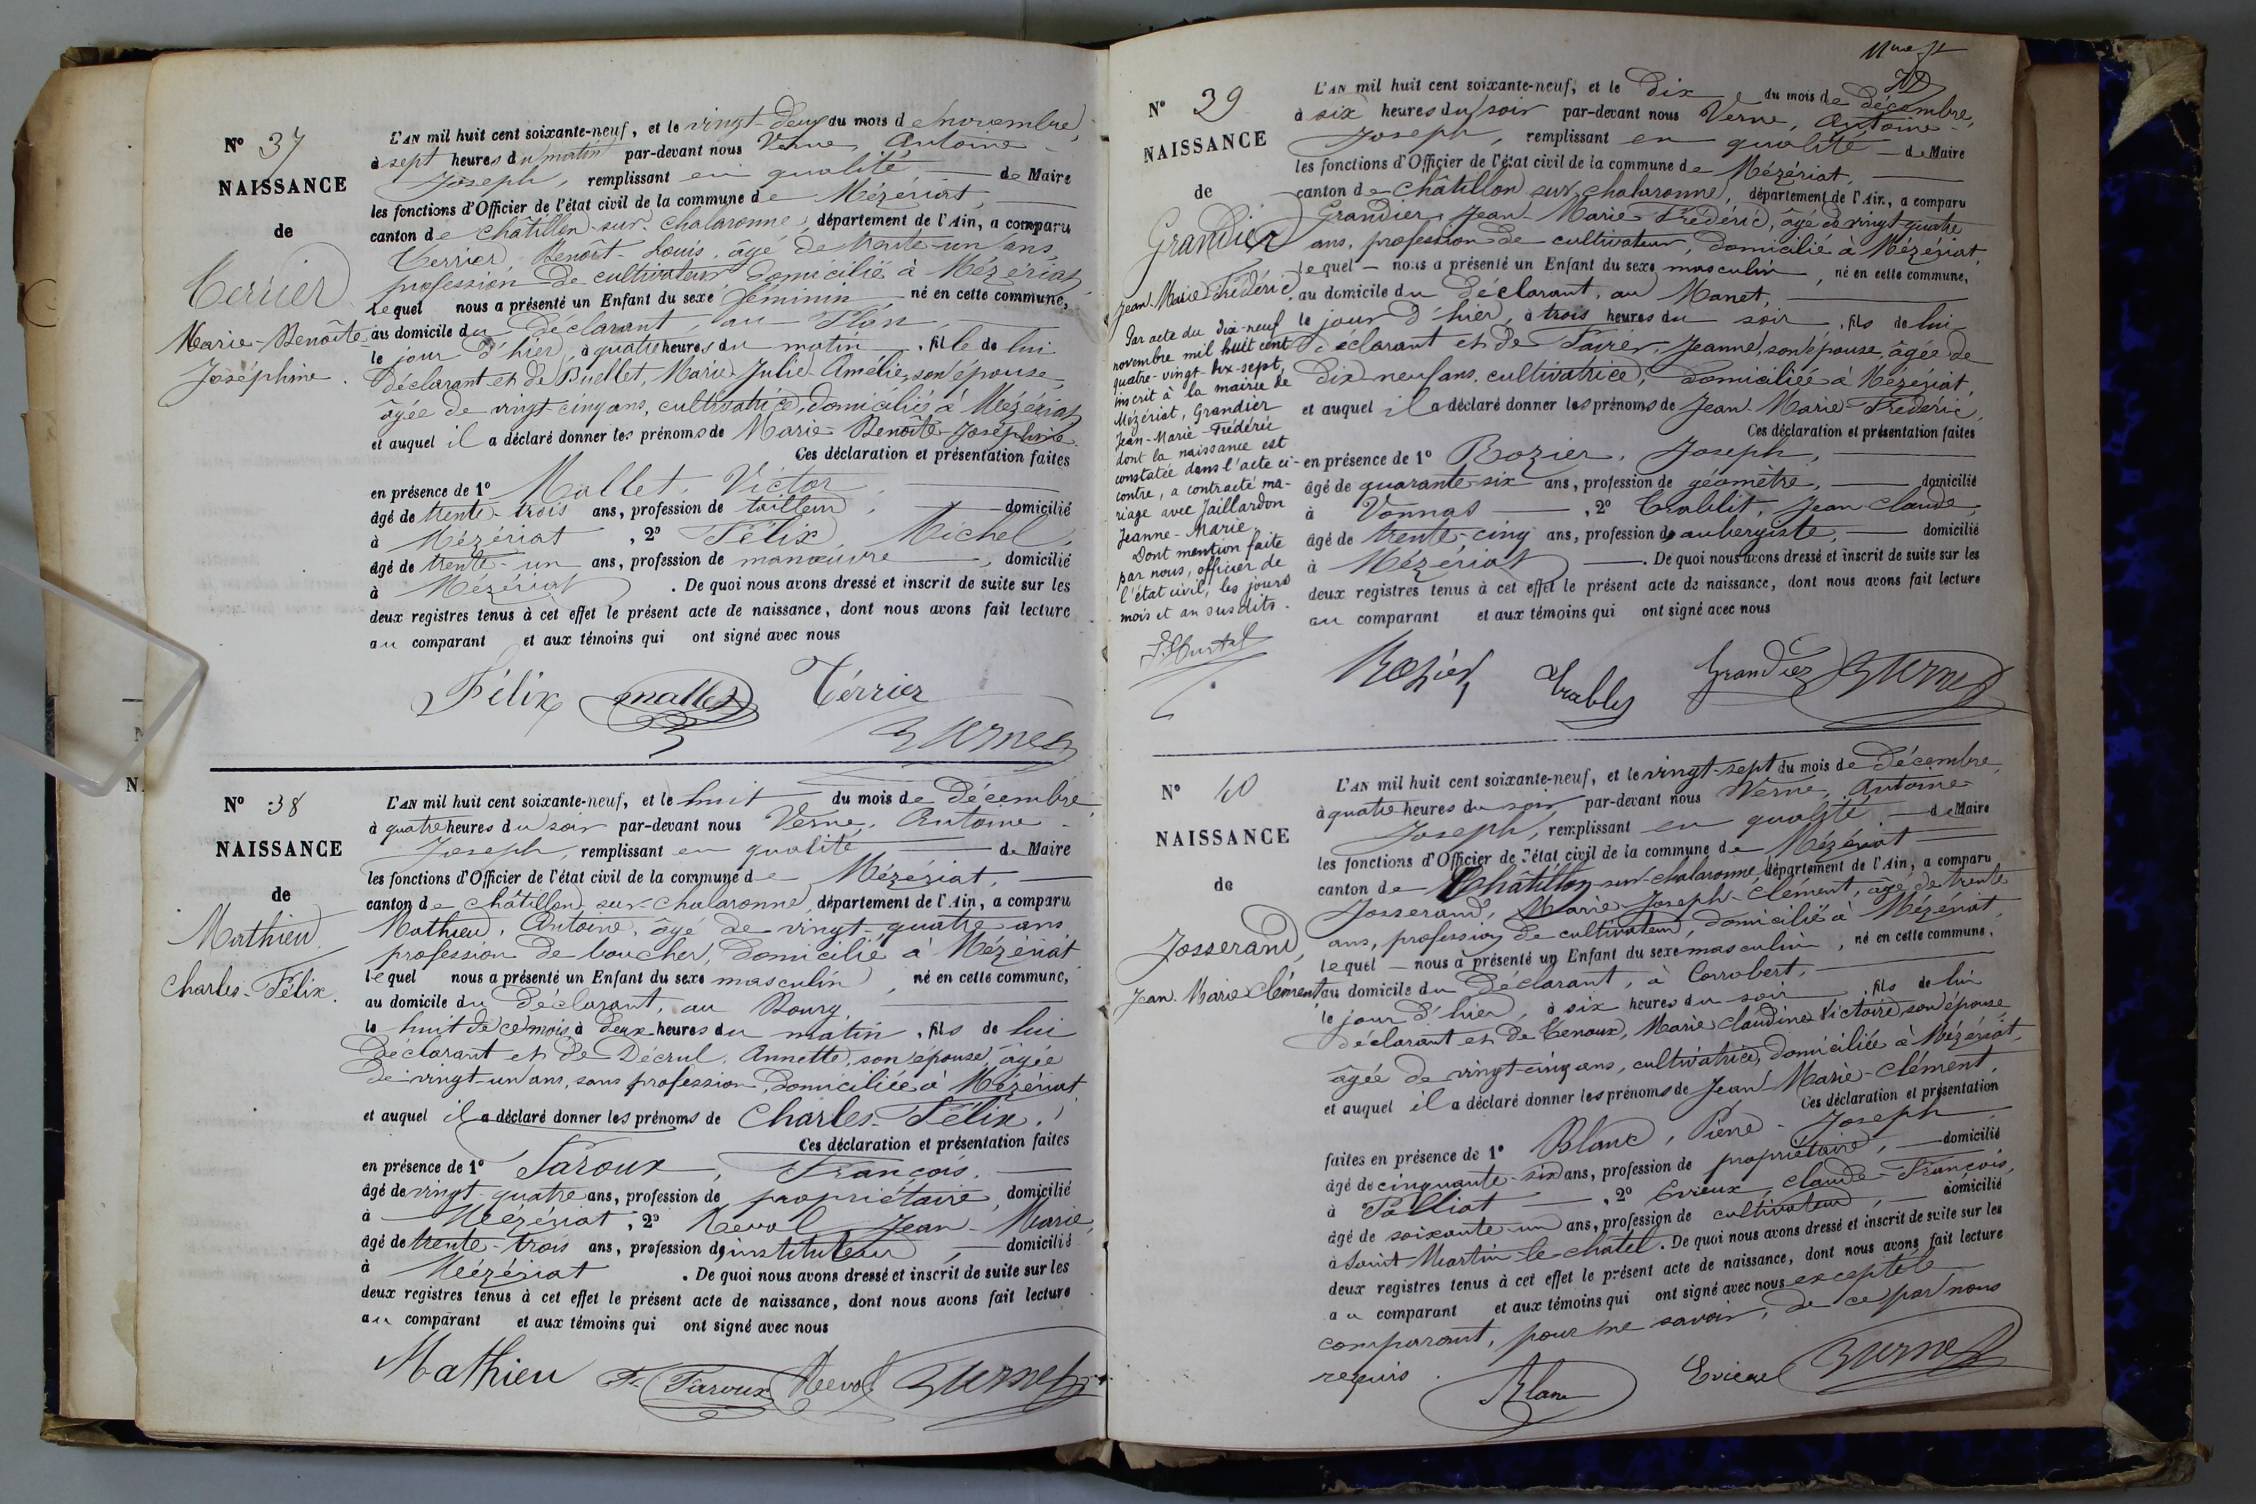 N° 37
NAISSANCE
de
Terrier
Marie-Benoîte
Joséphine.
L'AN mil huit cent soixante-neuf, et le vingt-deux du mois de novembre,
à sept heures du matin par-devant nous Verne, Antoine-
Joseph, remplissant en qualité de Maire
les fonctions d'Officier de l'état civil de la commune de Mézériat,
canton de Châtillon-sur-Chalaronne, département de l'Ain, a comparu
Terrier Benoît-Louis, âgé de trente-un ans,
profession de cultivateur domicilié à Mézériat,
lequel nous a présenté un Enfant du sexe féminin né en cette commune,
au domicile du déclarant, au Plan
le jour d'hier, à quatre heures du matin, fille de lui
déclarant et de Buellet, Marie Julie Amélie, son épouse,
âgée de vingt-cinq ans, cultivatrice, domicilié à Mézériat
et auquel il a déclaré donner les prénoms de Marie-Benoîte-Joséphine.
Ces déclaration et présentation faites
en présence de 1° Mallet, Victor,
âgé de trente-trois ans, profession de tailleur, domicilié
à Mézériat, 2° Félix, Michel,
âgé de trente-un ans, profession de manœuvre, domicilié
à Mézériat. De quoi nous avons dressé et inscrit de suite sur les
deux registres tenus à cet effet le présent acte de naissance, dont nous avons fait lecture
au comparant et aux témoins qui ont signé avec nous
Félix Mallet Térrier
Verne
N° 38
NAISSANCE
de
Mathieu,
Charles-Félix.
L'AN mil huit cent soixante-neuf, et le huit du mois de Décembre,
à quatre heures du soir par-devant nous Verne, Antoine-
Joseph, remplissant en qualité de Maire
les fonctions d'Officier de l'état civil de la commune de Mézériat,
canton de Châtillon sur-Chalaronne, département de l'Ain, a comparu
Mathieu, Antoine, âgé de vingt-quatre ans
profession de boucher, domicilié à Mézériat
lequel nous a présenté un Enfant du sexe masculin, né en cette commune,
au domicile du déclarant, au Bourg,
le huit de ce mois, à deux heures du matin, fils de lui
déclarant et de Décrul, Annette, son épouse, âgée
de vingt-un ans, sans profession, domiciliée à Mézériat
et auquel il a déclaré donner les prénoms de Charles-Félix.
Ces déclaration et présentation faites
en présence de 1° Faroux, François,
âgé de vingt-quatre ans, profession de propriétaire, domicilié
à Mézériat, 2° Revol Jean-Marie,
âgé de trente-trois ans, profession de instituteur, domicilié
à Mézériat. De quoi nous avons dressé et inscrit de suite sur les
deux registres tenus à cet effet le présent acte de naissance, dont nous avons fait lecture
au comparant et aux témoins qui ont signé avec nous
Mathieu F. Faroux Revol Verne
N° 39
NAISSANCE
de
Grandier
Jean-Marie Frédéric
Par acte du dix-neuf
novembre mil huit cent
quatre-vingt dix-sept,
inscrit à la mairie de
Mézériat, Grandier
Jean-Marie-Frédéric
dont la naissance est
constatée dans l'acte ci-
contre, a contracté ma-
riage avec Jaillardon
Jeanne-Marie.
Dont mention faite
par nous, officier de
l'état civil, les jours
mois et an susdits.
L'AN mil huit cent soixante-neuf, et le Dix du mois de décembre,
à six heures du soir par-devant nous Verne, Antoine-
Joseph, remplissant en qualité de Maire
les fonctions d'Officier de l'état civil de la commune de Mézériat,
canton de Châtillon sur Chalaronne, département de l'Ain, a comparu
Grandier, Jean-Marie-Frédéric, âgé de vingt-quatre
ans, profession de cultivateur, domicilié à Mézériat,
lequel nous a présenté un Enfant du sexe masculin, né en cette commune,
au domicile du déclarant, au Manet,
le jour d'hier, à trois heures du soir, fils de lui
déclarant et de Jeanne, son épouse, âgée de
dix neuf ans, cultivatrice, domiciliée à Mézériat
et auquel il a déclaré donner les prénoms de Jean-Marie-Frédéric,
Ces déclaration et présentation faites
en présence de 1° Rozier, Joseph,
âgé de quarante-six ans, profession de géomètre, domicilié
à Vonnas, 2° Trablit, Jean Claude,
âgé de trente-cinq ans, profession de aubergiste, domicilié
à Mézériat. De quoi nous avons dressé et inscrit de suite sur les
deux registres tenus à cet effet le présent acte de naissance, dont nous avons fait lecture
au comparant et aux témoins qui ont signé avec nous
Rozier Grandier Verne
N° 40
NAISSANCE
de
Josserand,
Jean-Marie Clément
L'AN mil huit cent soixante-neuf, et le vingt-sept du mois de Décembre,
à quatre heures du soir par-devant nous Verne, Antoine-
Joseph, remplissant en qualité de Maire
les fonctions d'Officier de l'état civil de la commune de Mézériat
canton de Châtillon-sur-Chalaronne, département de l'Ain, a comparu
Josserand, Marie-Joseph-Clément, âgé de trente
ans, profession de cultivateur, domicilié à Mézériat,
lequel nous a présenté un Enfant du sexe masculin, né en cette commune,
au domicile du déclarant, à Corrobert,
le jour d'hier, à six heures du soir, fils de lui
déclarant et de Tenoux, Marie Claudine Victoire, son épouse
âgée de vingt-cinq ans, cultivatrice, domiciliée à Mézériat,
et auquel il a déclaré donner les prénoms de Jean-Marie-Clément,
Ces déclaration et présentation
faites en présence de 1° Blanc, Pierre-Joseph,
âgé de cinquante-six ans, profession de propriétaire, domicilié
à Polliat, 2° Evieux, Claude-François,
âgé de soixante-un ans, profession de cultivateur, domicilié
à Saint Martin-le-Châtel. De quoi nous avons dressé et inscrit de suite sur les
deux registres tenus à cet effet le présent acte de naissance, dont nous avons fait lecture
au comparant et aux témoins qui ont signé avec nous excepté le
comparant, pour ne savoir, de ce par nous
requis.
Blanc Evieux Verne